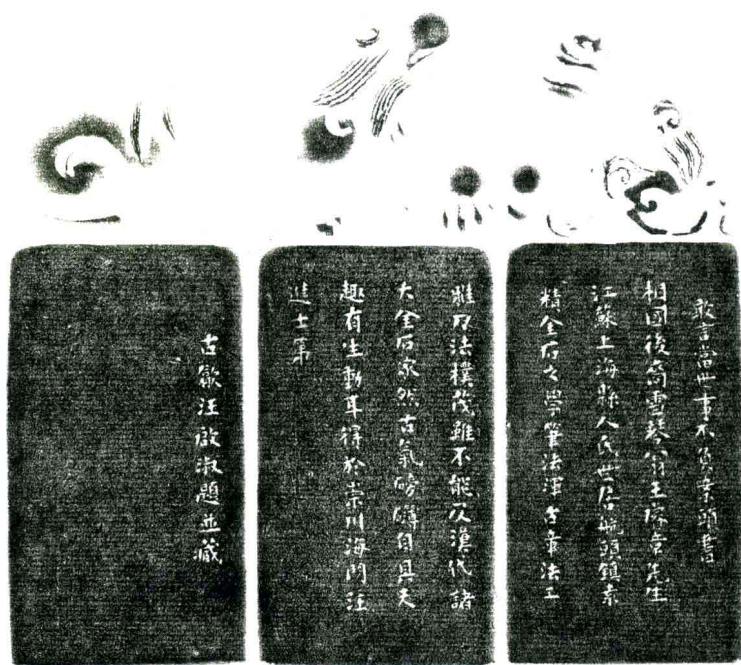 敢言當世事不負案頭書
相國後裔雪琴翁王先生
江蘇上海縣人氏世居航頭鎮素
精金石之學筆法渾古章法工
雅刀法樸茂雖不能及漢代諸
大金石家然古氣磅礴自具天
趣有生動耳得於崇川海門汪
進士第
古歙汪啟淑題並藏